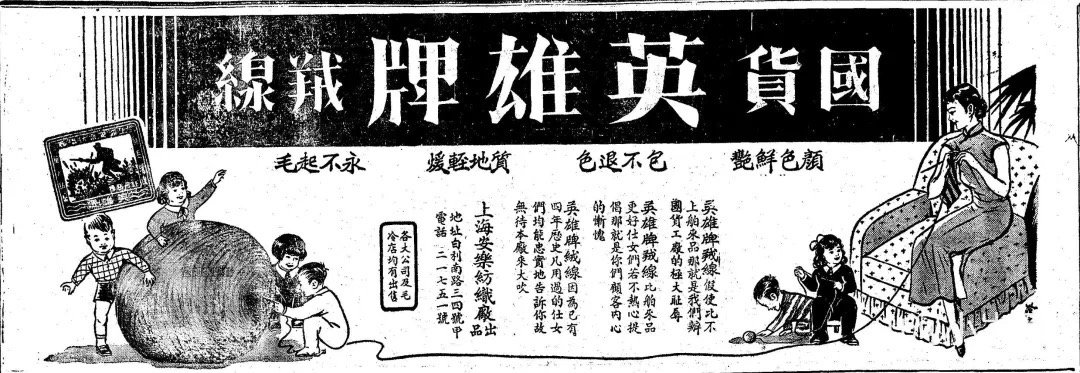 國貨 英雄牌 羢線
顏色鮮豔
包不退色
質地輕煖
永不起毛
英雄牌羢線假使比不
上舶來品那就是我們辦
國貨工廠的極大恥辱
英雄牌羢線比舶來品
更好仕女們若不熱心提
倡那就是你們顧客內心
的慚愧
英雄牌羢線因為已有
四年歷史凡用過的仕女
們均能忠實地告訴你故
無待本廠來大吹
上海安樂紡織廠出品
地址白利南路三四號甲
電話 二一七五一號
各大公司及毛
冷店均有出售